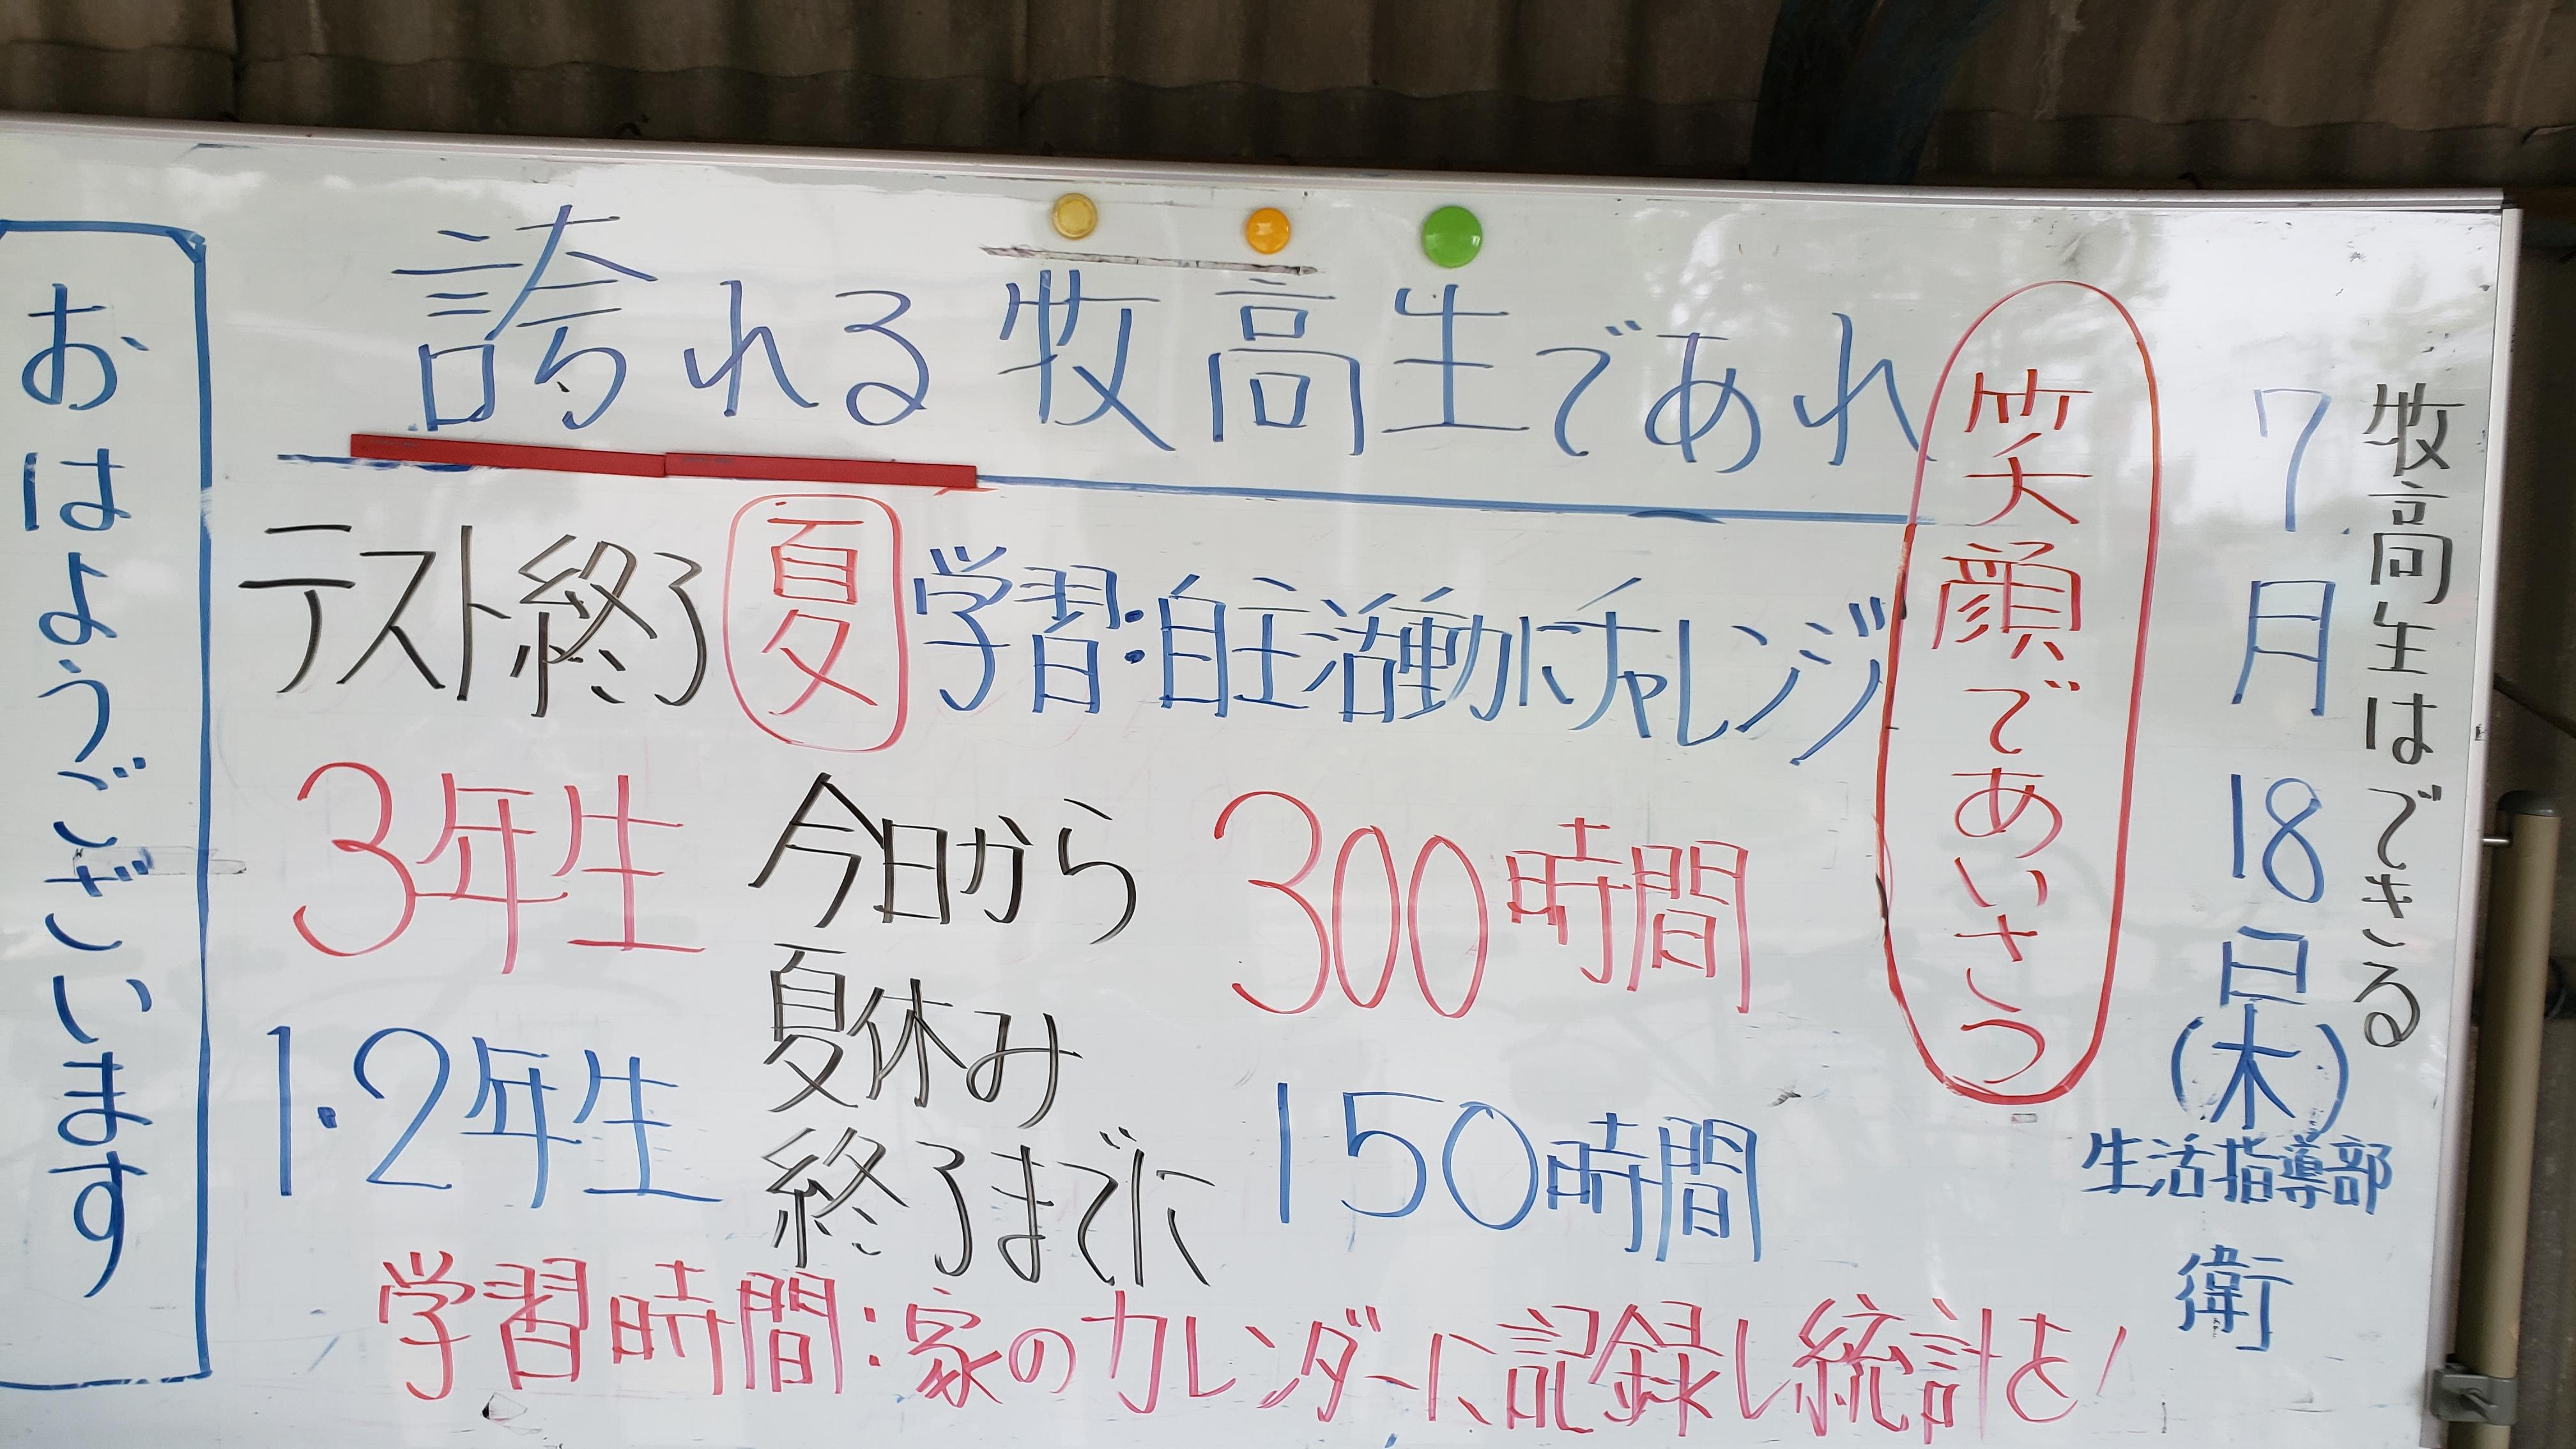 牧高生はできる
7月18日(木)
生活指導部
衛
笑顔であいさつ
誇れる牧高生であれ
テスト終了 夏 学習:自主活動にチャレンジ
3年生 今日から 300時間
夏休み
1・2年生 終了までに 150時間
学習時間:家のカレンダーに記録し統計を!
おはようございます